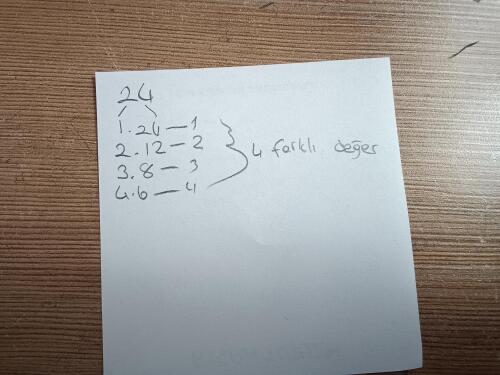 24
1.24 — 1
2.12 — 2
3.8 — 3
4.6 — 4
4 farklı değer